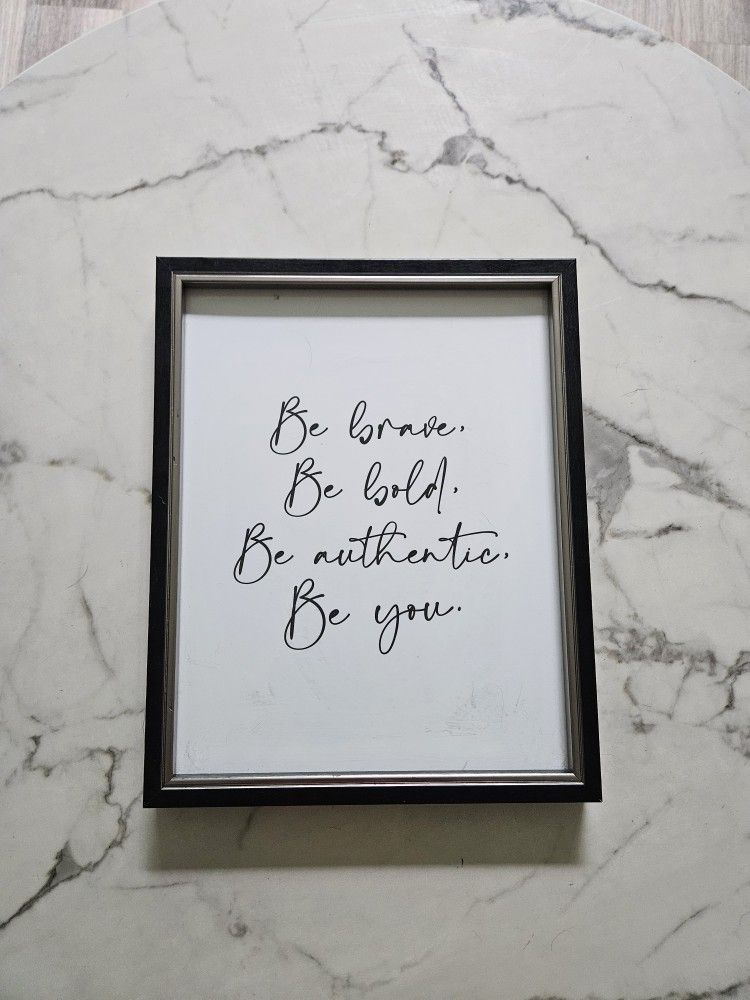 Be brave,
Be bold,
Be authentic,
Be you.